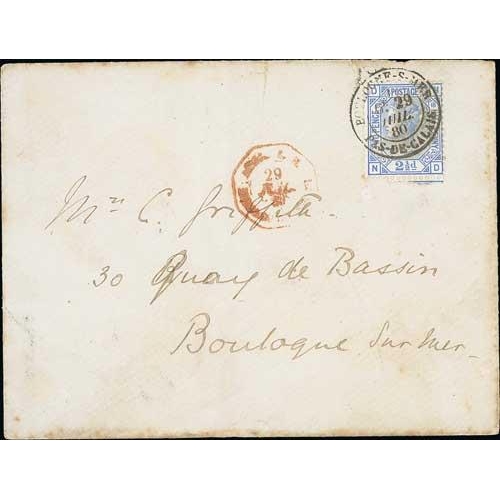 BOULOGNE-S-MER
29
JUIL
80
PAS-DE-CALAIS
POSTAGE
2½d
N D
29
Mrs C. Griffith.
30 Quay de Bassin
Boulogne Sur Mer